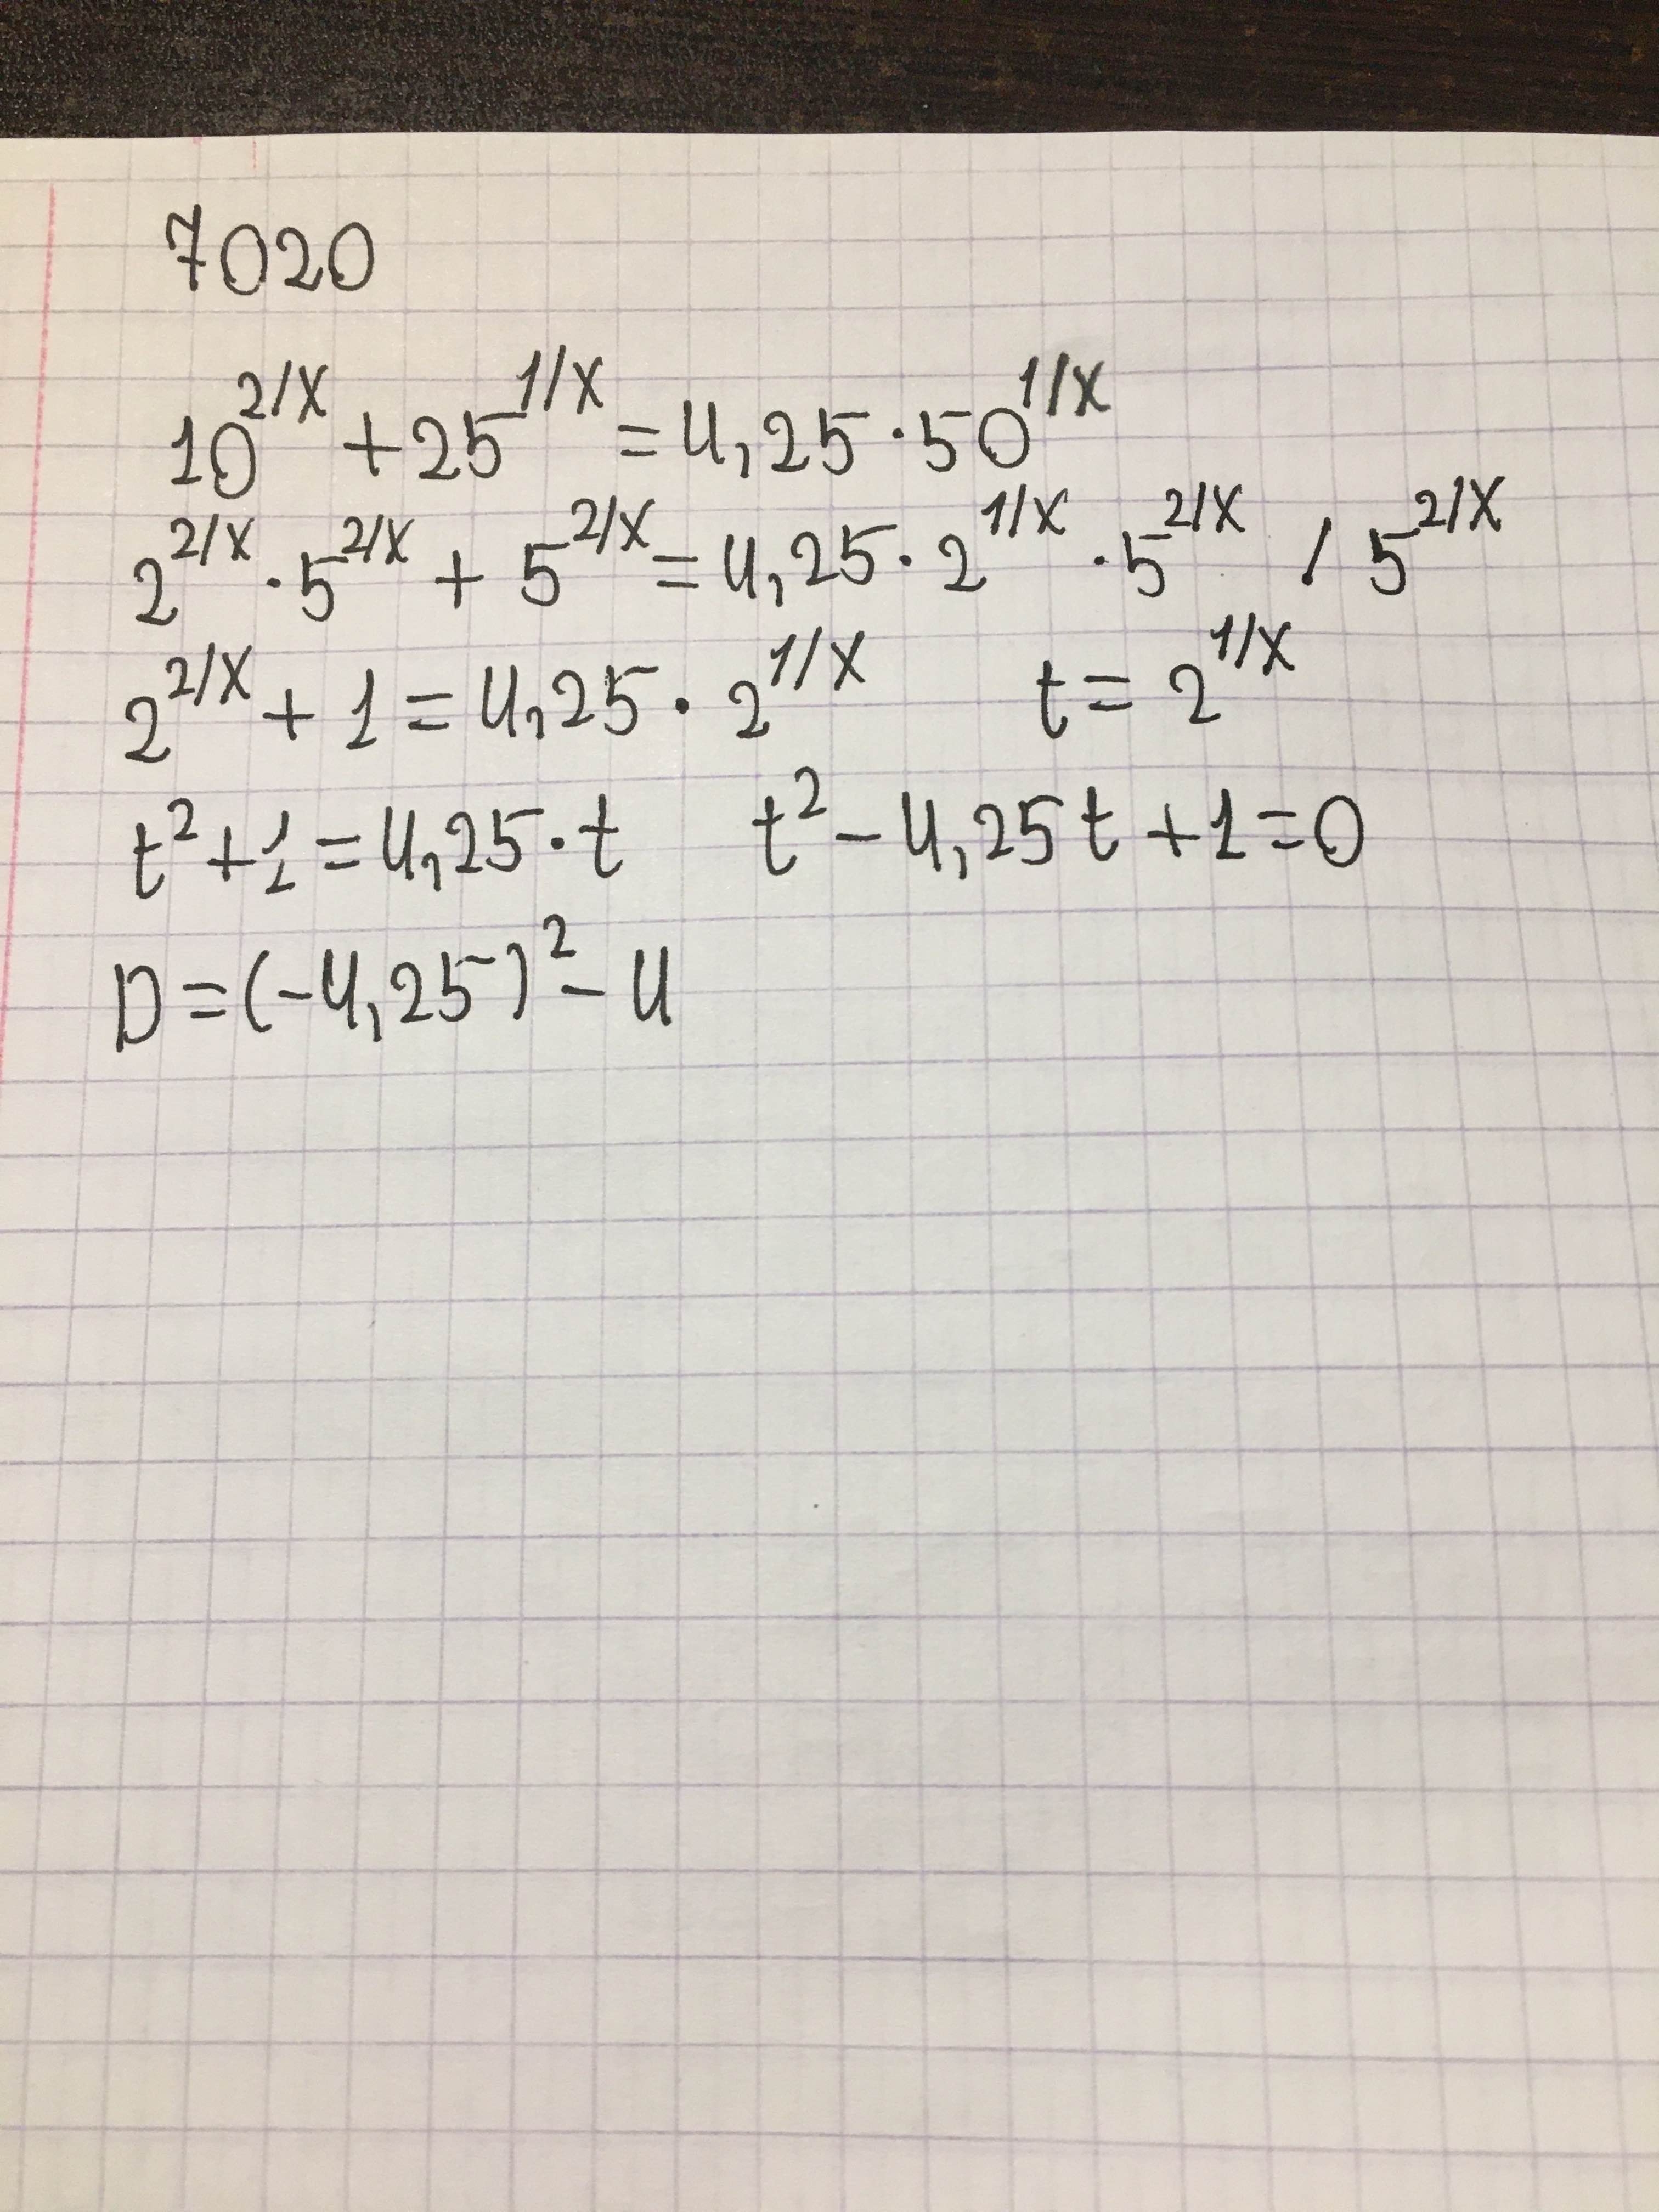 7020
10^{2/x} + 25^{1/x} = 4,25 · 50^{1/x}
2^{2/x} · 5^{2/x} + 5^{2/x} = 4,25 · 2^{1/x} · 5^{2/x} / 5^{2/x}
2^{2/x} + 1 = 4,25 · 2^{1/x} t = 2^{1/x}
t² + 1 = 4,25 · t t² - 4,25t + 1 = 0
D = (-4,25)² - 4